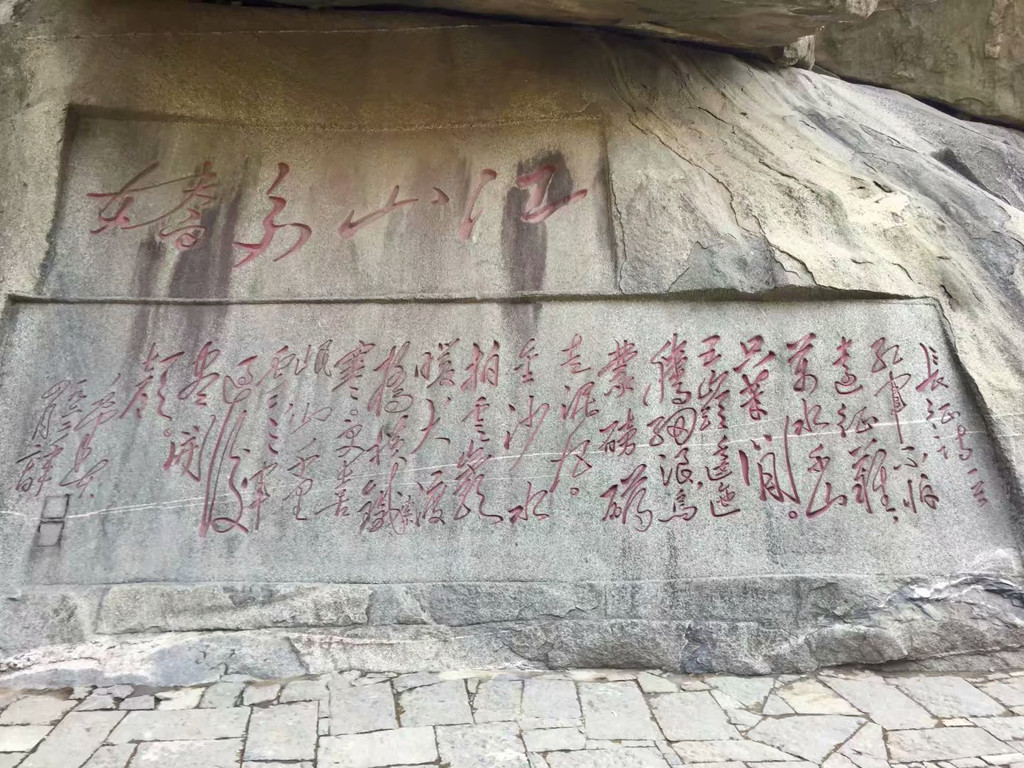 江山多嬌
长征诗一首
红軍不怕
遠征難,
萬水千山
只等闲。
五嶺逶迤
騰細浪,烏
蒙磅礴
走泥丸。
金沙水
拍雲崖
暖,大渡
橋横鐵索
寒。更喜
岷山千里
雪,三軍
過後
盡開
顏。
毛泽东